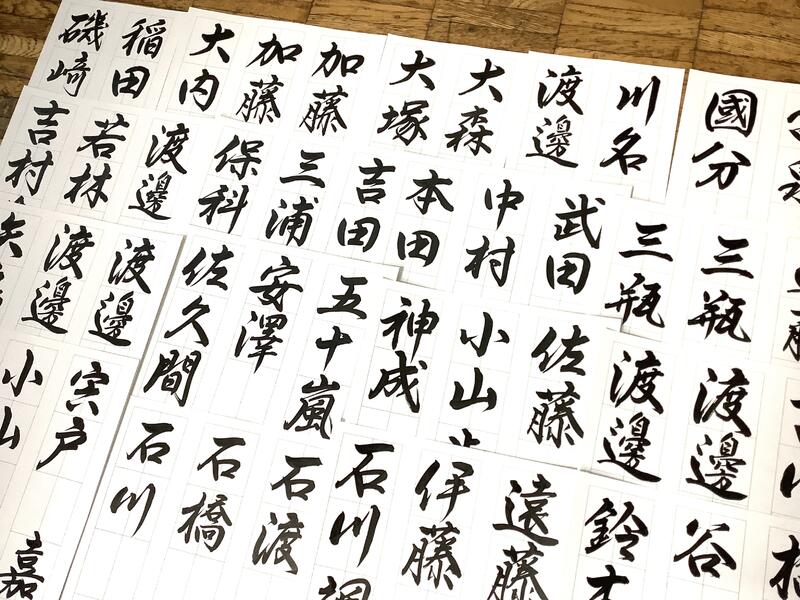 磯崎
稲田
大内
加藤
加藤
大塚
大森
渡邊
川名
國分
吉村
若林
渡邊
保科
三浦
吉田
本田
中村
武田
三瓶
三瓶
渡邊
渡邊
佐久間
安澤
五十嵐
神成
小山
佐藤
渡邊
渡邊
小山
宍戸
石川
石橋
石渡
石川
伊藤
遠藤
鈴木
谷
嘉